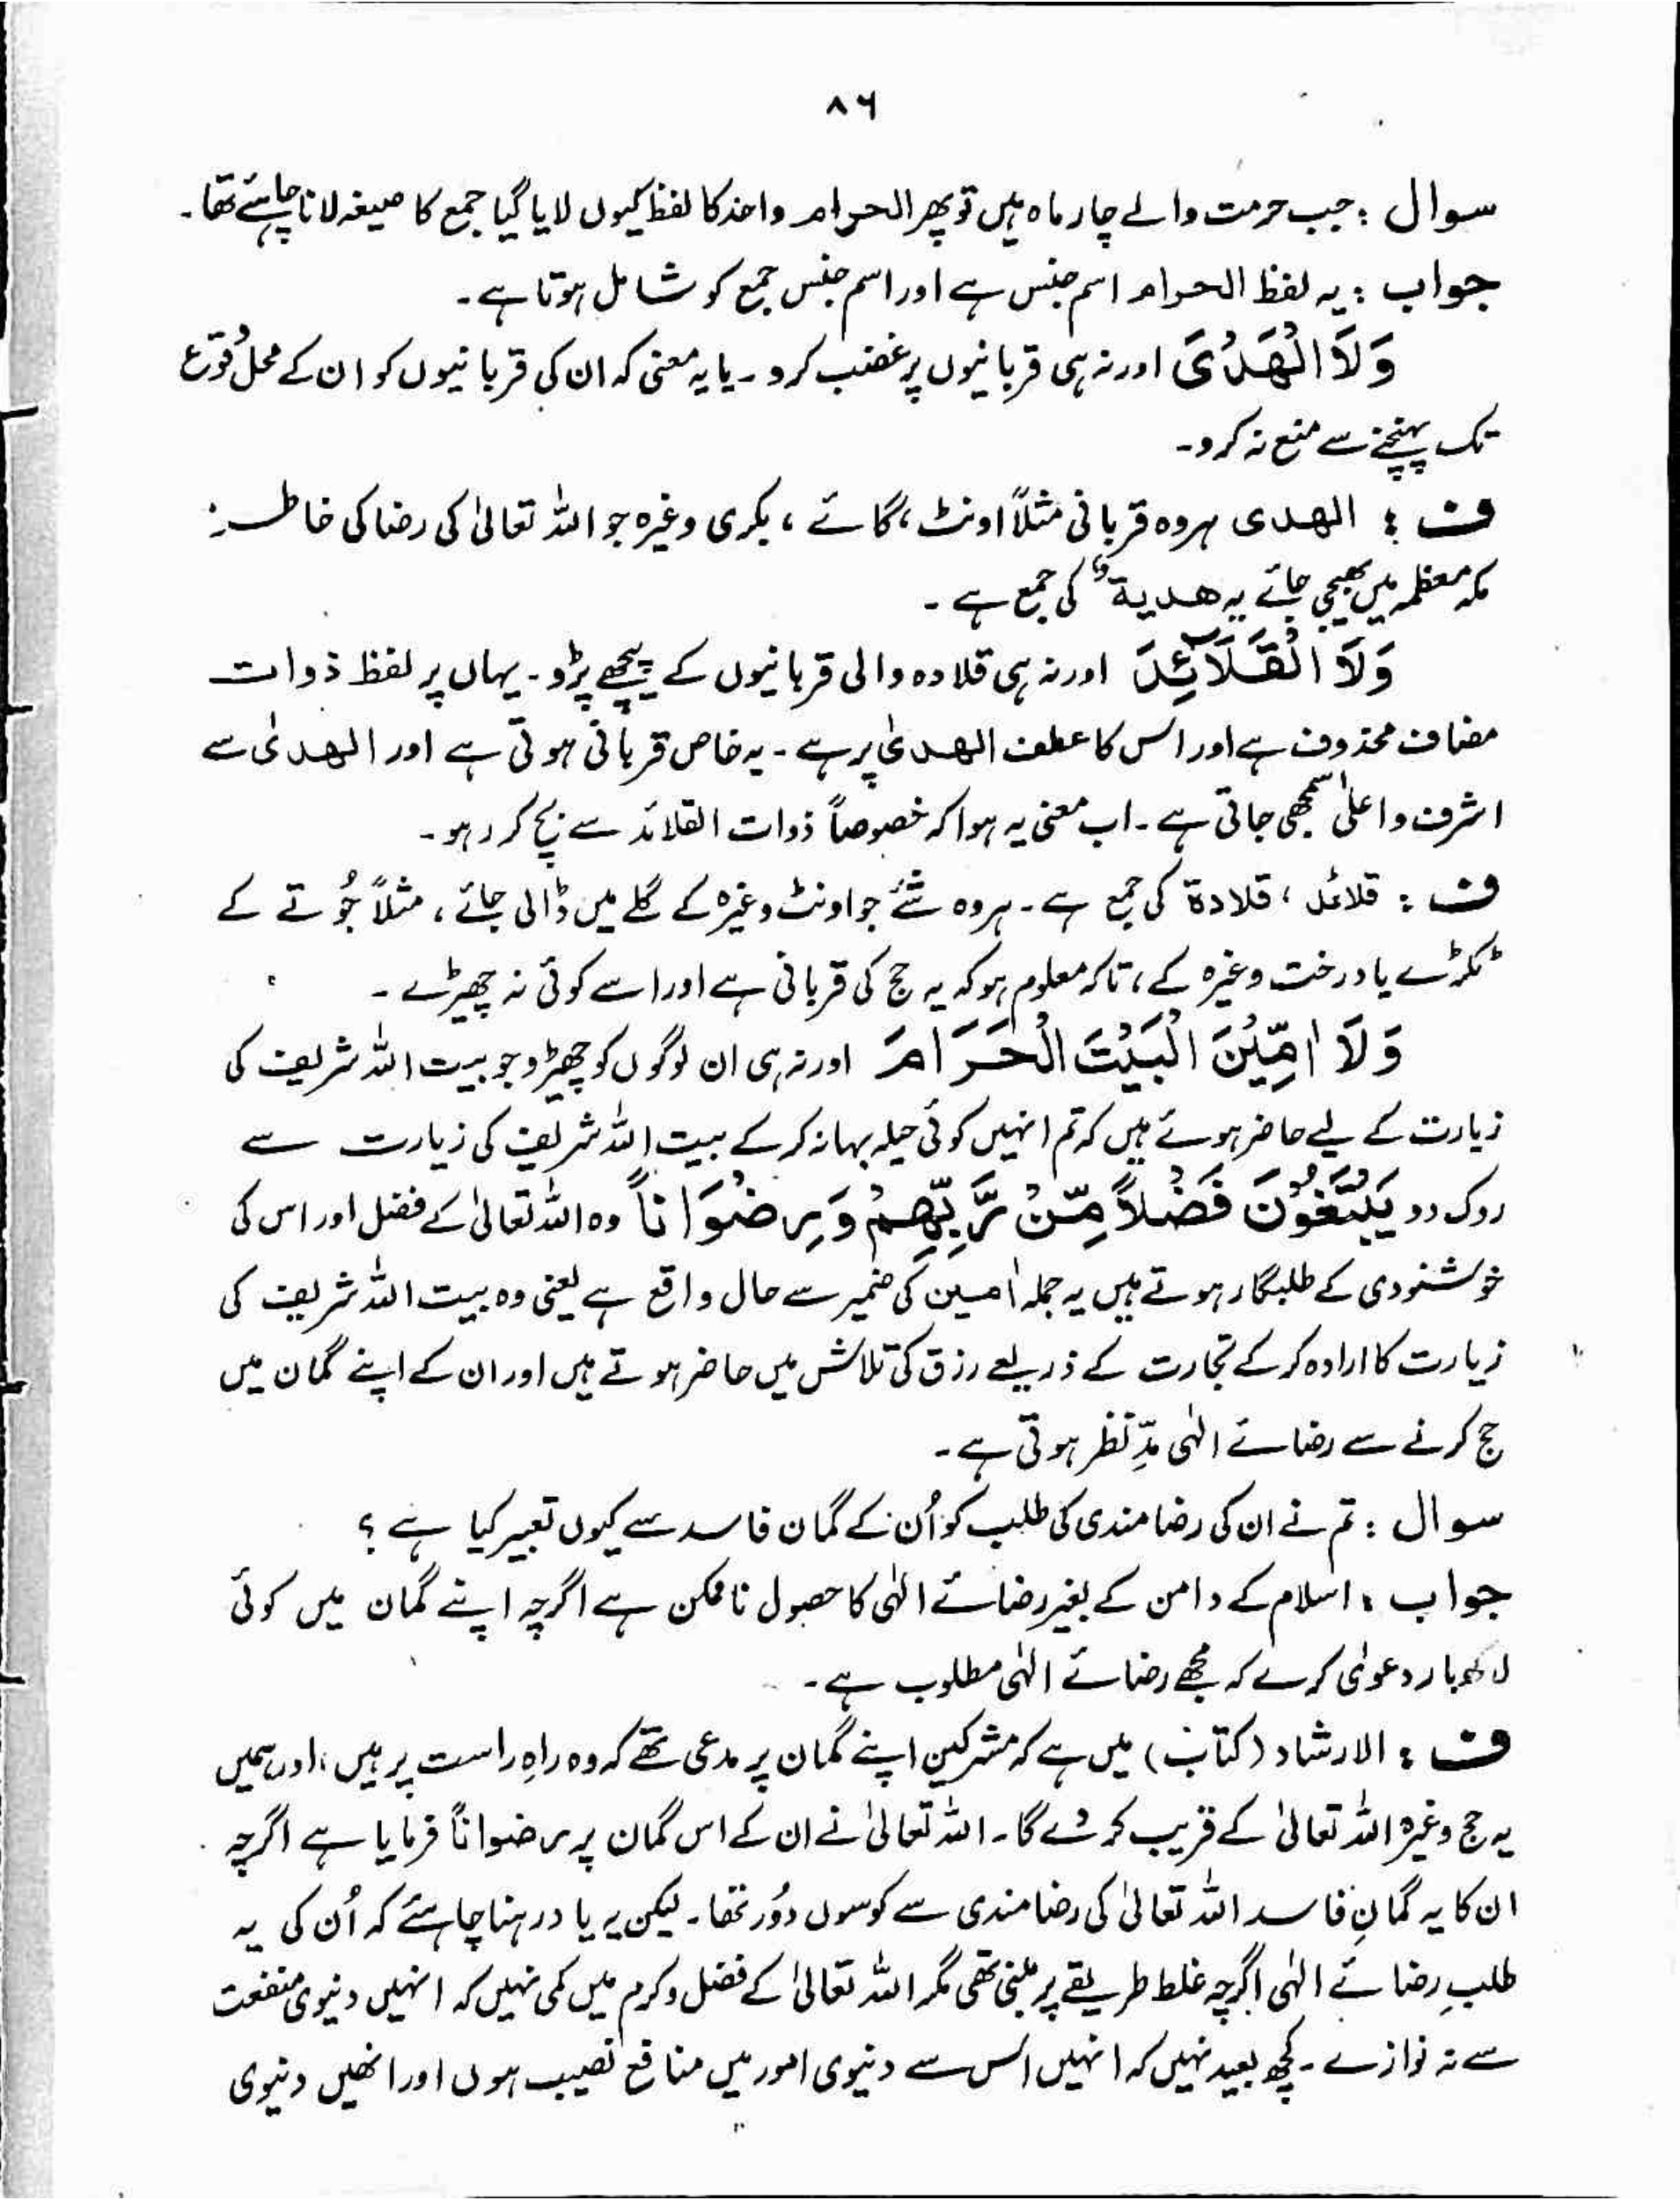 ۸۶
سوال : جب حرمت والے چار ماہ ہیں تو پھر الحرام واحد کا لفظ کیوں لایا گیا جمع کا صیغہ لانا چاہئے تھا۔
جواب : یہ لفظ الحرام اسم جنس ہے اور اسم جنس جمع کو شامل ہوتا ہے۔
وَلَا الْهَدْیَ اور نہ ہی قربانیوں پر غضب کرو۔ یا یہ معنی کہ ان کی قربانیوں کو ان کے محل وقوع
تک پہنچنے سے منع نہ کرو۔
ف : الھدی ہر وہ قربانی مثلاً اونٹ، گائے ، بکری وغیرہ جو اللہ تعالیٰ کی رضا کی خاطر
مکہ معظمہ میں بھیجی جائے یہ ھدیۃ کی جمع ہے۔
وَلَا الْقَلَآئِدَ اور نہ ہی قلادہ والی قربانیوں کے پیچھے پڑو۔ یہاں پر لفظ ذوات
مضاف محذوف ہے اور اس کا عطف الھدیٰ پر ہے۔ یہ خاص قربانی ہوتی ہے اور الھدیٰ سے
اشرف و اعلیٰ سمجھی جاتی ہے۔ اب معنی یہ ہوا کہ خصوصاً ذوات القلائد سے بچ کر رہو۔
ف : قلائد ، قلادۃ کی جمع ہے۔ ہر وہ شے جو اونٹ وغیرہ کے گلے میں ڈالی جائے ، مثلاً جُوتے کے
ٹکڑے یا درخت وغیرہ کے ، تاکہ معلوم ہو کہ یہ حج کی قربانی ہے اور اسے کوئی نہ چھیڑے۔
وَلَا آمِّیْنَ الْبَیْتَ الْحَرَامَ اور نہ ہی ان لوگوں کو چھیڑو جو بیت اللہ شریف کی
زیارت کے لیے حاضر ہوئے ہیں کہ تم انہیں کوئی حیلہ بہانہ کر کے بیت اللہ شریف کی زیارت سے
روک دو یَبْتَغُوْنَ فَضْلاً مِّنْ رَّبِّهِمْ وَرِضْوَاناً وہ اللہ تعالیٰ کے فضل اور اس کی
خوشنودی کے طلبگار ہوتے ہیں یہ جملہ اٰمین کی ضمیر سے حال واقع ہے یعنی وہ بیت اللہ شریف کی
زیارت کا ارادہ کر کے تجارت کے ذریعے رزق کی تلاش میں حاضر ہوتے ہیں اور ان کے اپنے گمان میں
حج کرنے سے رضائے الٰہی مدِّنظر ہوتی ہے۔
سوال : تم نے ان کی رضامندی کی طلب کو اُن کے گمان فاسد سے کیوں تعبیر کیا ہے ؟
جواب : اسلام کے دامن کے بغیر رضائے الٰہی کا حصول ناممکن ہے اگرچہ اپنے گمان میں کوئی
لاکھ بار دعوٰی کرے کہ مجھے رضائے الٰہی مطلوب ہے۔
ف : الارشاد (کتاب) میں ہے کہ مشرکین اپنے گمان پر مدعی تھے کہ وہ راہِ راست پر ہیں ، اور ہمیں
یہ حج وغیرہ اللہ تعالیٰ کے قریب کر دے گا۔ اللہ تعالیٰ نے ان کے اس گمان پر رضواناً فرمایا ہے اگرچہ
ان کا یہ گمانِ فاسد اللہ تعالیٰ کی رضامندی سے کوسوں دُور تھا۔ لیکن یہ یاد رہنا چاہئے کہ اُن کی یہ
طلبِ رضائے الٰہی اگرچہ غلط طریقے پر مبنی تھی مگر اللہ تعالیٰ کے فضل و کرم میں کمی نہیں کہ انہیں دنیوی منفعت
سے نہ نوازے۔ کچھ بعید نہیں کہ انہیں اس سے دنیوی امور میں منافع نصیب ہوں اور انھیں دنیوی